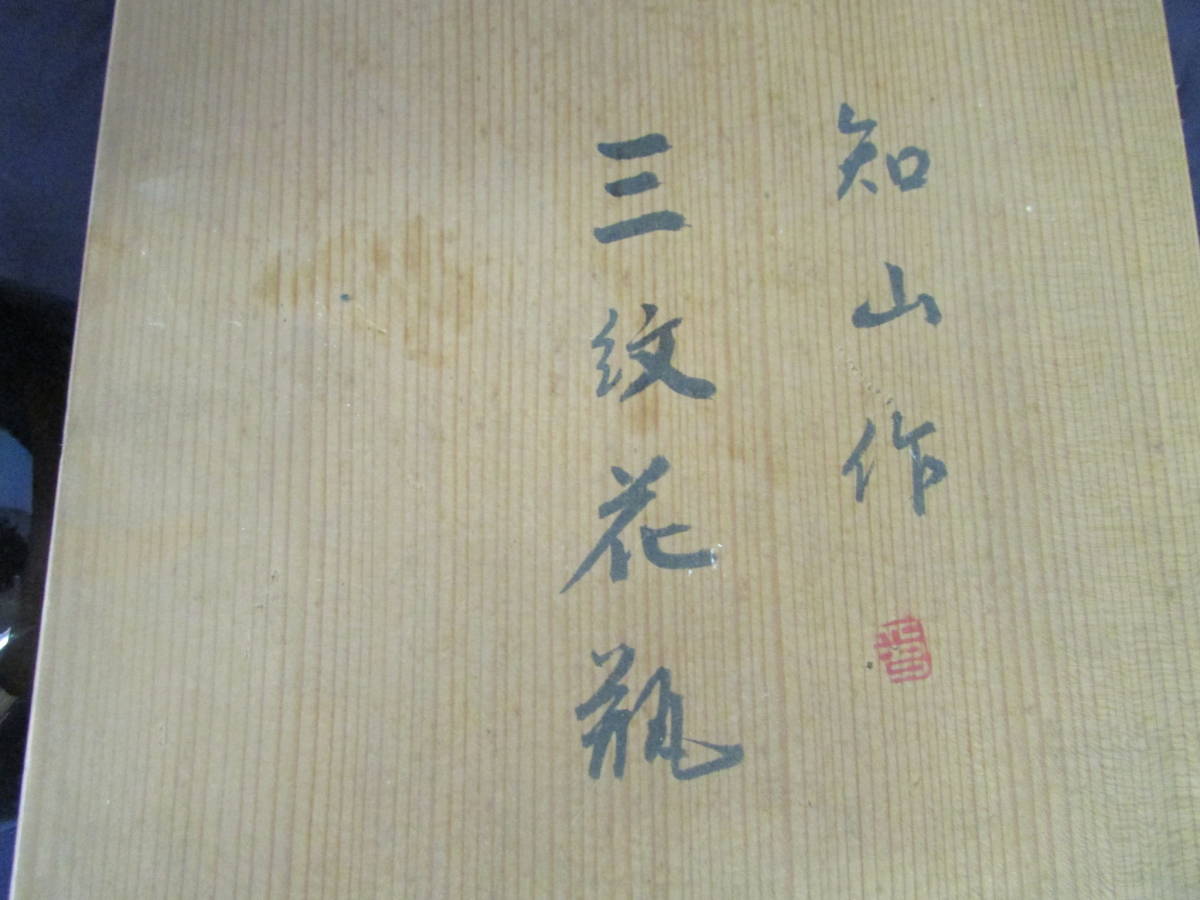 知山作
三紋花瓶